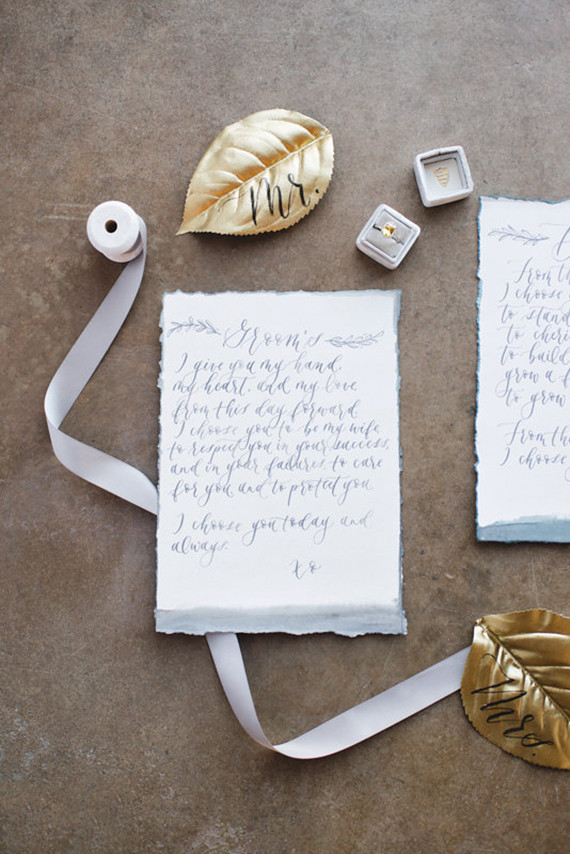 Mr.
Groom's
I give you my hand,
my heart, and my love
from this day forward
I choose you to be my wife
to respect you in your success,
and in your failures, to care
for you and to protect you
I choose you today and
always.
xo
From th
I choose
to stand
to cheri
to build
grow a f
to grow
From th
I choose
Mrs.